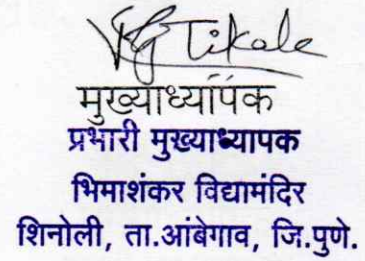 VG Tikale
मुख्याध्यापक
प्रभारी मुख्याध्यापक
भिमाशंकर विद्यामंदिर
शिनोली, ता.आंबेगाव, जि.पुणे.